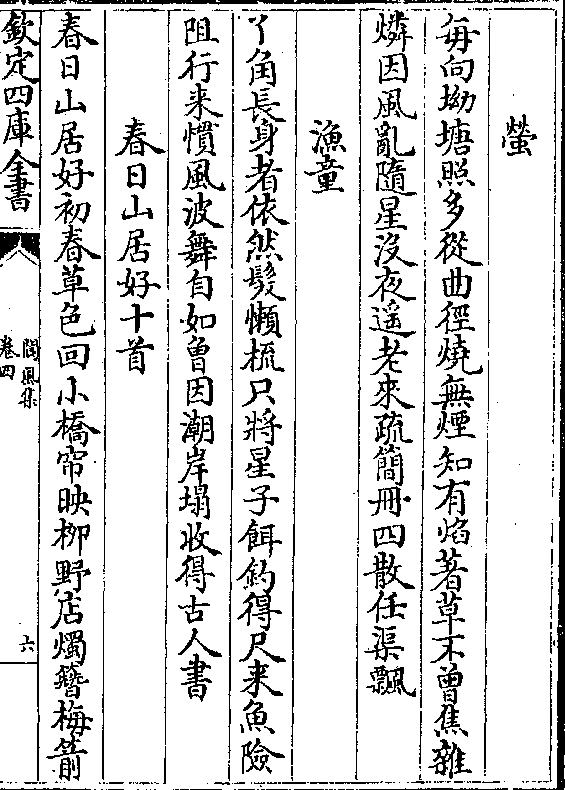 螢
每向坳塘照多從曲徑燒無煙知有焰著草不曾焦雜
燐因風亂隨星沒夜遥老來疏簡冊四散任渠飄
漁童
丫角長身者依然髮懶梳只將星子餌釣得尺来魚險
阻行来慣風波舞自如曾因潮岸塌收得古人書
春日山居好十首
春日山居好初春草色回小橋帘映柳野店燭簪梅箭
欽定四庫全書
閬風集
卷四
六